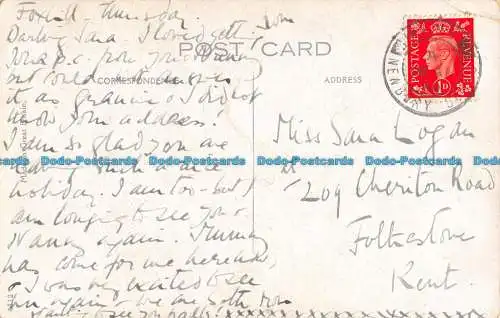 Foxhill. Thursday
Darling Sara. I loved getting
your p.c. from you & Nanny
but could answer
it as Grannie & I did not
know your address!
I am so glad you are
having such a nice
holiday. I am too - but I
am longing to see you &
Nanny again. Mummy
has come for me here and
I was very excited to see
her again - we are both now
POST CARD
CORRESPONDENCE
ADDRESS
POSTAGE
REVENUE
1D
Miss Sara Logan
at
209 Cheriton Road
Folkestone
Kent.
Dodo-Postcards Dodo-Postcards Dodo-Postcards Dodo-Postcards Dodo-Postcards